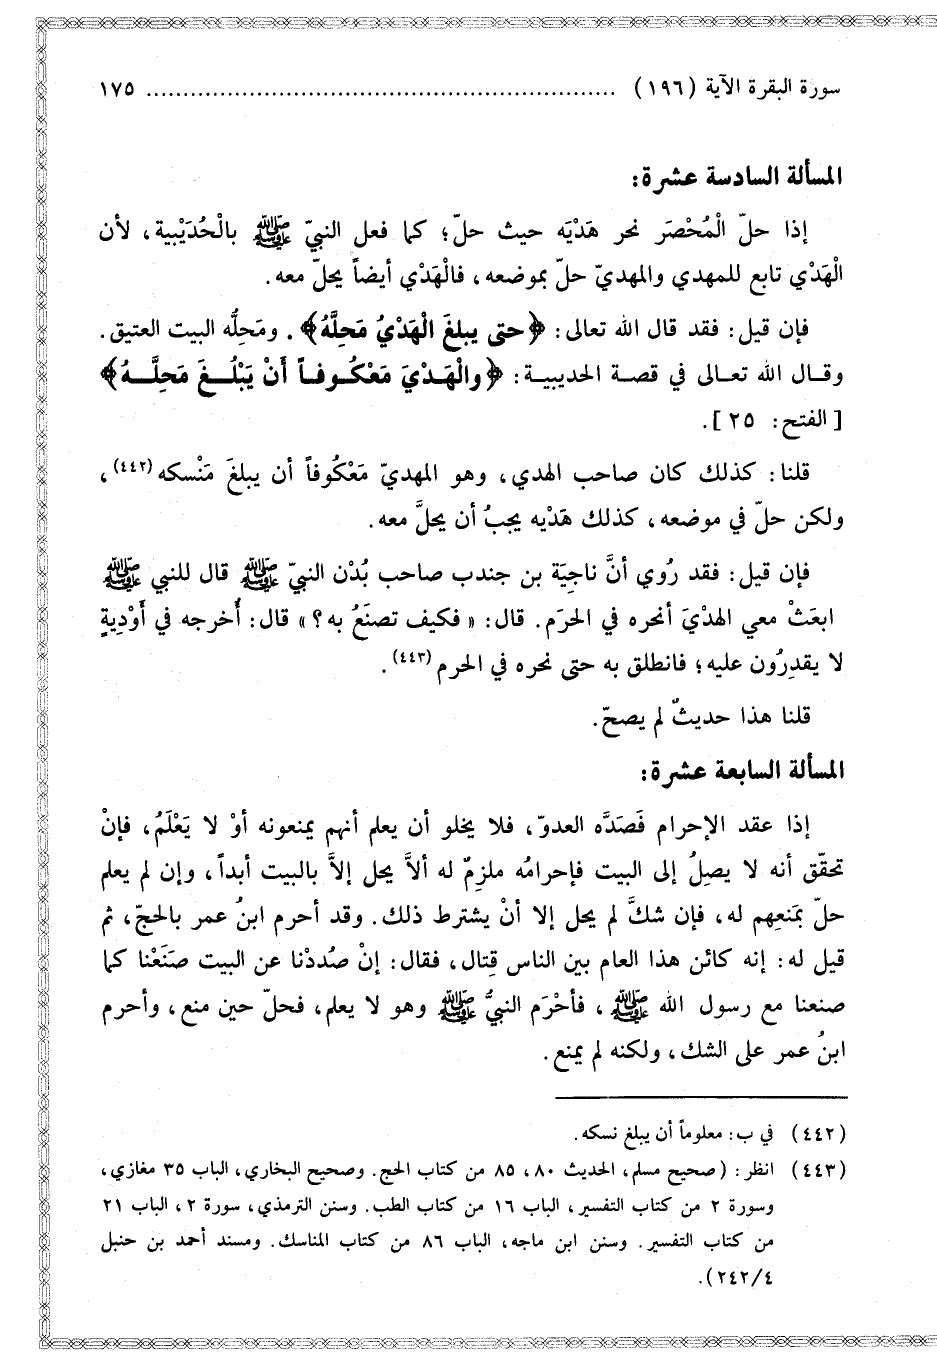 سورة البقرة الآية (١٩٦) ................................................................ ١٧٥
المسألة السادسة عشرة:
إذا حلّ الْمُحْصَر نحر هَدْيَه حيث حلّ؛ كما فعل النبيّ ﷺ بالْحُدَيْبية، لأن
الْهَدْي تابع للمهدي والمهديّ حلّ بموضعه، فالْهَدْي أيضاً يحلّ معه.
فإن قيل: فقد قال الله تعالى: ﴿حتى يبلغَ الْهَدْيُ مَحِلَّهُ﴾. ومَحِلُّه البيت العتيق.
وقـال الله تعـالى في قصـة الحديبيـة: ﴿والْهَـدْيَ مَعْكُـوفـاً أَنْ يَبْلُـغَ مَحِلَّـهُ﴾
[الفتح: ٢٥].
قلنا: كذلك كان صاحب الهدي، وهو المهديّ مَعْكُوفاً أن يبلغَ مَنْسكه(٤٤٢)،
ولكن حلّ في موضعه، كذلك هَدْيه يجبُ أن يحلَّ معه.
فإن قيل: فقد رُوي أنَّ ناجيَة بن جندب صاحب بُدْن النبيّ ﷺ قال للنبي ﷺ
ابعَثْ معي الهدْيَ أنحره في الحرَم. قال: «فكيف تصنَعُ به؟» قال: أُخرجه في أَوْدِيةٍ
لا يقدِرُون عليه؛ فانطلق به حتى نحره في الحرم(٤٤٣).
قلنا هذا حديثٌ لم يصحّ.
المسألة السابعة عشرة:
إذا عقد الإحرام فَصَدَّه العدوّ، فلا يخلو أن يعلم أنهم يمنعونه أوْ لا يَعْلَمُ، فإنْ
تحقّق أنه لا يصِلُ إلى البيت فإحرامُه ملزِمٌ له ألاَّ يحل إلاَّ بالبيت أبداً، وإن لم يعلم
حلّ بمَنعِهم له، فإن شكَّ لم يحل إلا أنْ يشترط ذلك. وقد أحرم ابنُ عمر بالحجّ، ثم
قيل له: إنه كائن هذا العام بين الناس قِتال، فقال: إنْ صُددْنا عن البيت صنَعْنا كما
صنعنا مع رسول الله ﷺ، فأحْرَم النبيُّ ﷺ وهو لا يعلم، فحلّ حين منع، وأحرم
ابنُ عمر على الشك، ولكنه لم يمنع.
(٤٤٢) في ب: معلوماً أن يبلغ نسكه.
(٤٤٣) انظر: (صحيح مسلم، الحديث ٨٠، ٨٥ من كتاب الحج. وصحيح البخاري، الباب ٣٥ مغازي،
وسورة ٢ من كتاب التفسير، الباب ١٦ من كتاب الطب. وسنن الترمذي، سورة ٢، الباب ٢١
من كتاب التفسير. وسنن ابن ماجه، الباب ٨٦ من كتاب المناسك. ومسند أحمد بن حنبل
٢٤٢/٤).